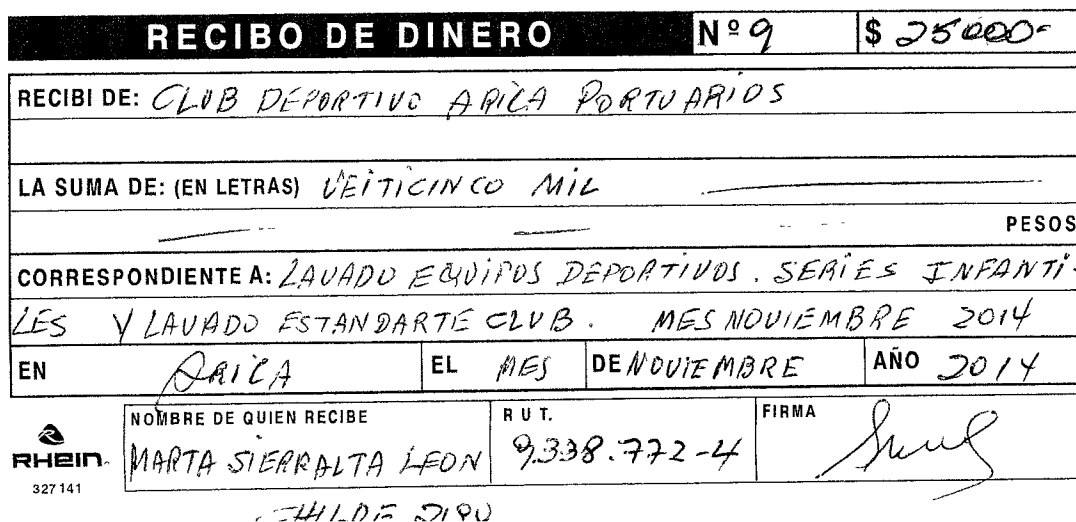 RECIBO DE DINERO Nº 9 $ 25000-
RECIBI DE: CLUB DEPORTIVO ARICA PORTUARIOS
LA SUMA DE: (EN LETRAS) VEITICINCO MIL
PESOS
CORRESPONDIENTE A: LAVADO EQUIPOS DEPORTIVOS. SERIES INFANTI-
LES Y LAVADO ESTANDARTE CLUB. MES NOVIEMBRE 2014
EN ARICA EL MES DE NOVIEMBRE AÑO 2014
NOMBRE DE QUIEN RECIBE R U T. FIRMA
RHEIN MARTA SIERRALTA LEON 9.338.772-4
327141